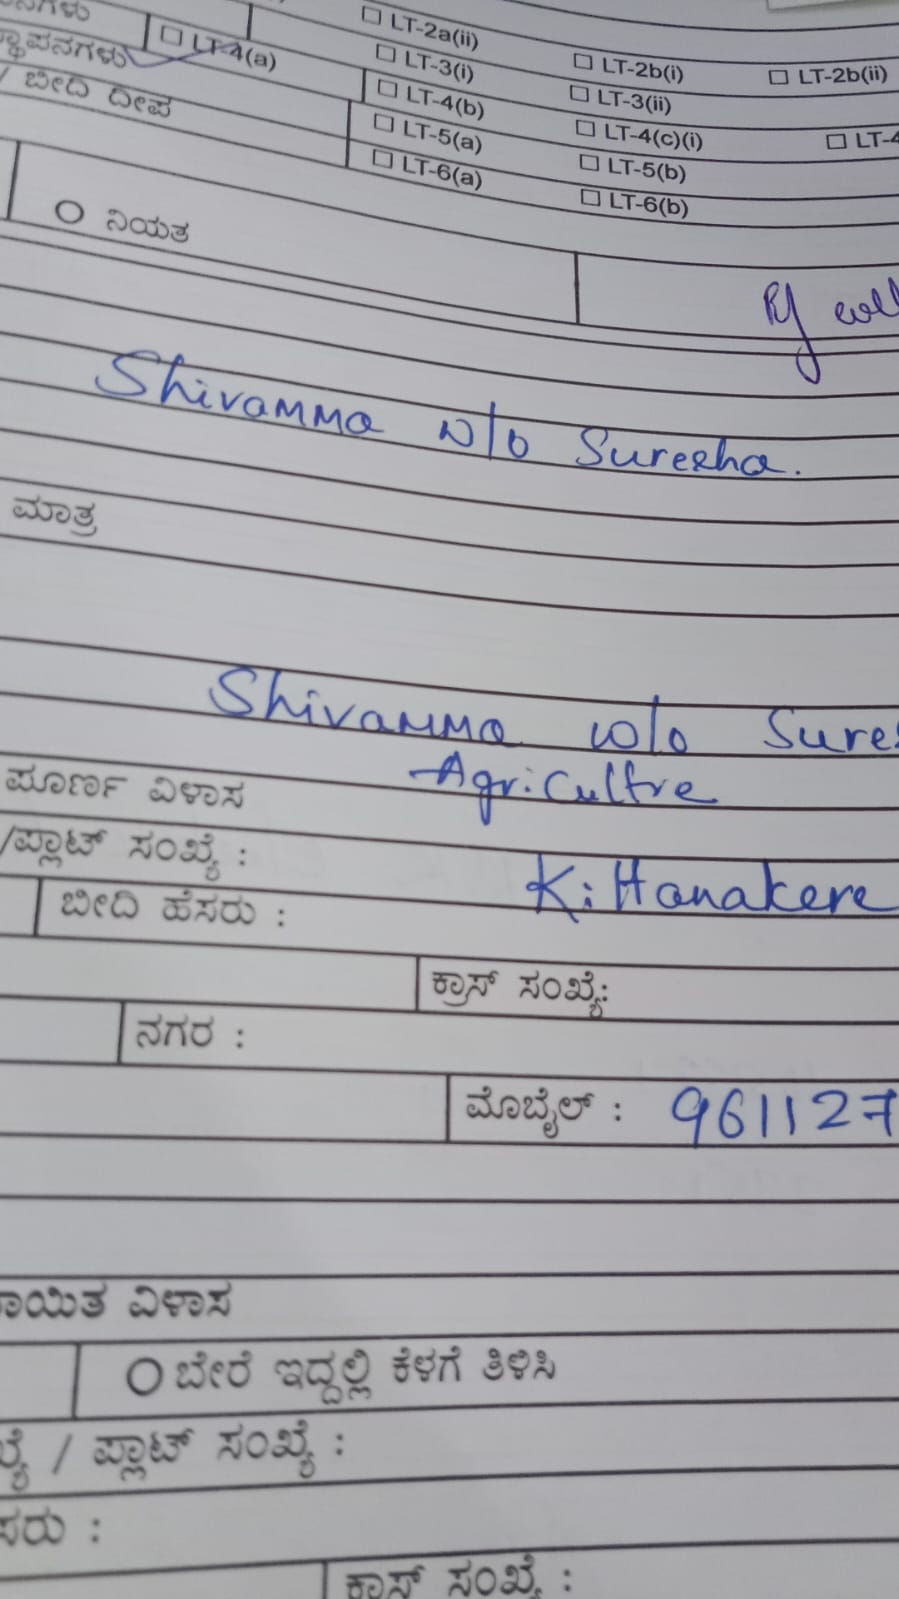 ☐ LT-2a(ii) ☐ LT-2b(i) ☐ LT-2b(ii)
☐ LT-3(i) ☐ LT-3(ii)
☐ LT-4(a) ☐ LT-4(b) ☐ LT-4(c)(i) ☐ LT-4
/ ಬೀದಿ ದೀಪ ☐ LT-5(a) ☐ LT-5(b)
☐ LT-6(a) ☐ LT-6(b)
ನಿಯತ
Shivamma w/o Suresha.
ಮಾತ್ರ
Shivamma w/o Sures
Agricultre
ಪೂರ್ಣ ವಿಳಾಸ
/ಪ್ಲಾಟ್ ಸಂಖ್ಯೆ : K. Hanakere
ಬೀದಿ ಹೆಸರು :
ಕ್ರಾಸ್ ಸಂಖ್ಯೆ:
ನಗರ :
ಮೊಬೈಲ್ : 961127
ಾಯಿತ ವಿಳಾಸ
ಬೇರೆ ಇದ್ದಲ್ಲಿ ಕೆಳಗೆ ತಿಳಿಸಿ
/ ಪ್ಲಾಟ್ ಸಂಖ್ಯೆ :
ಸರು :
ಕ್ರಾಸ್ ಸಂಖ್ಯೆ :